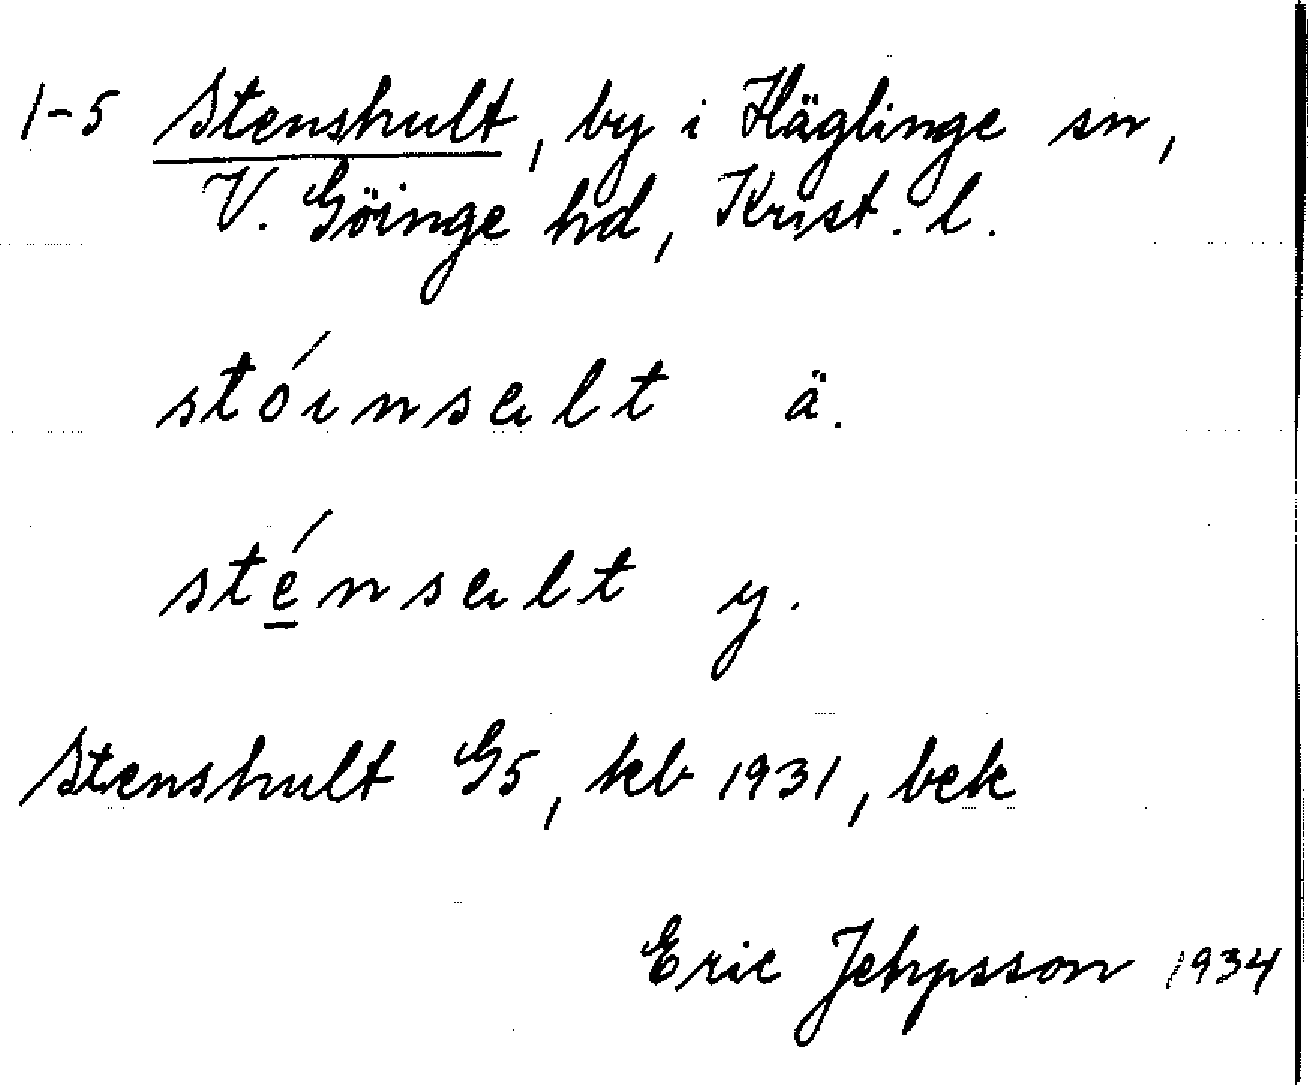 1-5 Stenshult, by i Häglinge sn,
V. Göinge hd, Krist. l.
stóınsalt ä.
sténsalt y.
Stenshult G5, kb 1931, bek
Eric Jehpsson 1934